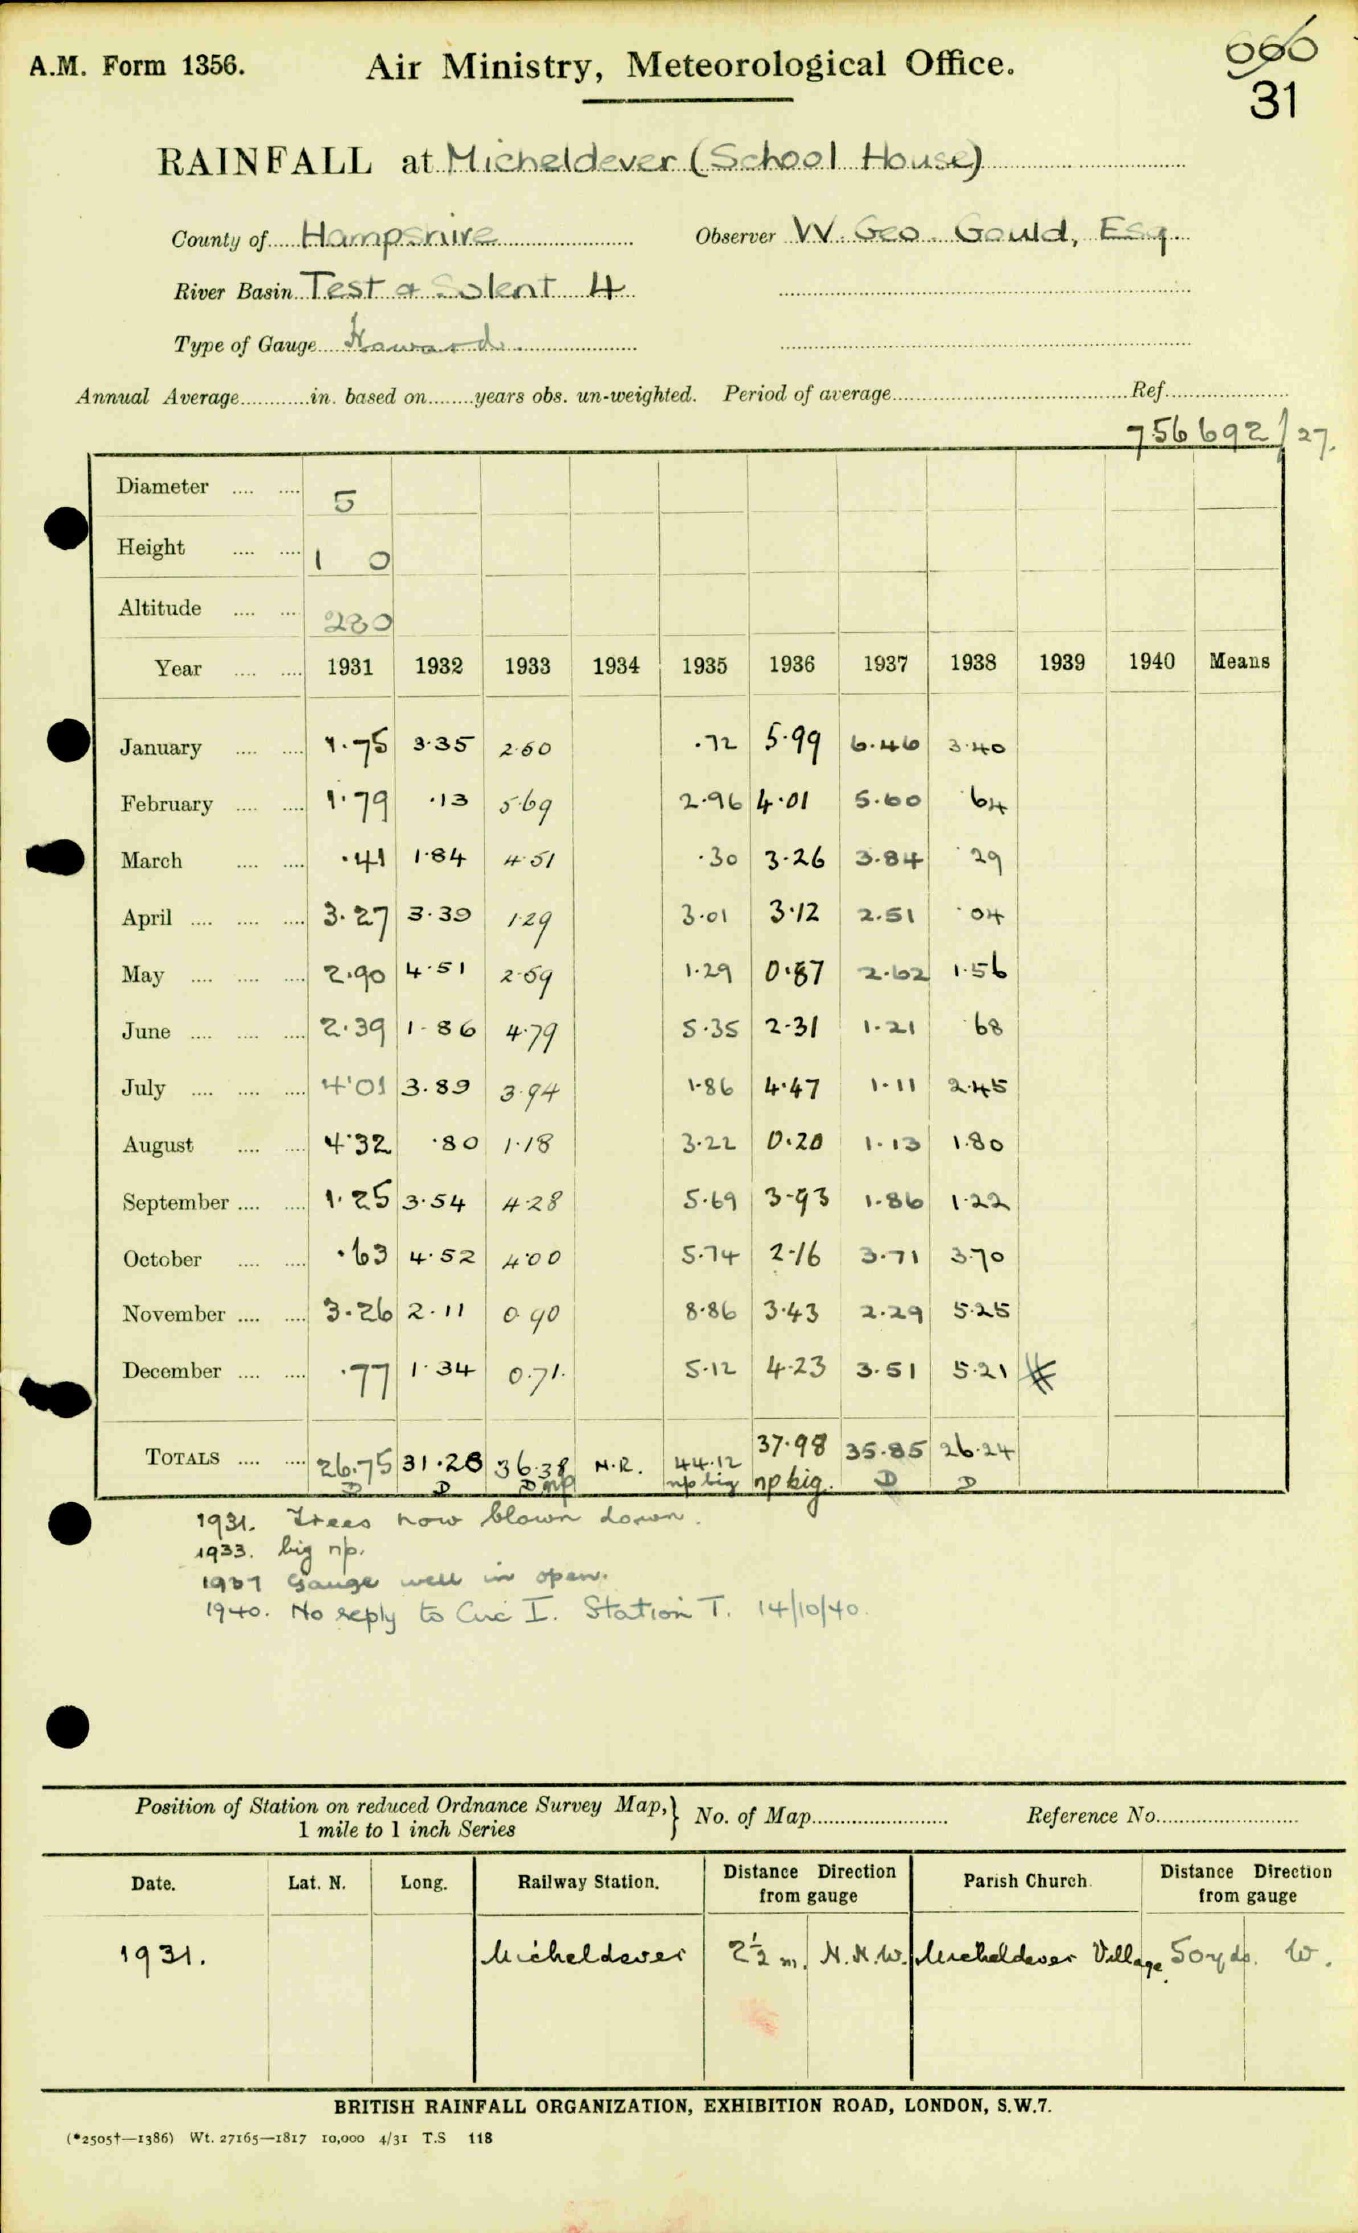 A.M. Form 1356.
Air Ministry, Meteorological Office.
31
RAINFALL at Micheldever (School House)
County of Hampshire Observer W. Geo. Gould, Esq.
River Basin Test & Solent 4
Type of Gauge Howard
Annual Average in. based on years obs. un-weighted. Period of average Ref.
756692/27.
Diameter 5
Height 1 0
Altitude 280
Year 1931 1932 1933 1934 1935 1936 1937 1938 1939 1940 Means
January 1.75 3.35 2.50 .72 5.99 6.46 3.40
February 1.79 .13 5.69 2.96 4.01 5.60 .64
March .41 1.84 4.51 .30 3.26 3.84 .29
April 3.27 3.39 1.29 3.01 3.12 2.51 .04
May 2.90 4.51 2.59 1.29 0.87 2.62 1.56
June 2.39 1.86 4.79 5.35 2.31 1.21 .68
July 4.01 3.89 3.94 1.86 4.47 1.11 2.45
August 4.32 .80 1.18 3.22 0.20 1.13 1.80
September 1.25 3.54 4.28 5.69 3.93 1.86 1.22
October .63 4.52 4.00 5.74 2.16 3.71 3.70
November 3.26 2.11 0.90 8.86 3.43 2.29 5.25
December .77 1.34 0.71. 5.12 4.23 3.51 5.21
TOTALS 26.75 31.28 36.38 N.R. 44.12 37.98 35.85 26.24
D D D np np big np big. D D
1931. Trees now blown down.
1933. big np.
1937 Gauge well in open.
1940. No reply to Circ I. Station T. 14/10/40.
Position of Station on reduced Ordnance Survey Map, 1 mile to 1 inch Series } No. of Map Reference No.
Date. Lat. N. Long. Railway Station. Distance Direction from gauge Parish Church. Distance Direction from gauge
1931. Micheldever 2½ m. N.N.W. Micheldever Village 50 yds. W.
BRITISH RAINFALL ORGANIZATION, EXHIBITION ROAD, LONDON, S.W.7.
(*2505†—1386) Wt. 27165—1817 10,000 4/31 T.S 118